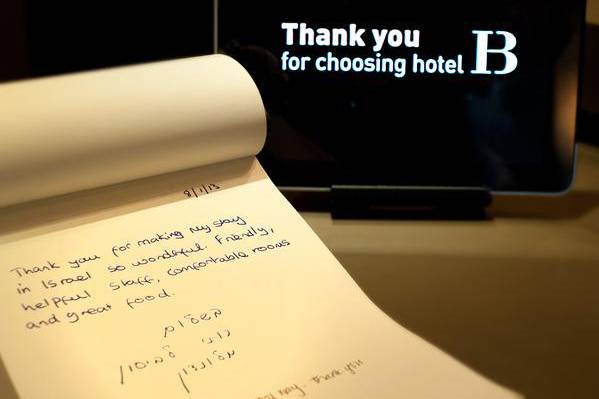 Thank you
for choosing hotel B
8/1/13
Thank you for making my stay
in Israel so wonderful. Friendly,
helpful staff, comfortable rooms
and great food.
Thank you